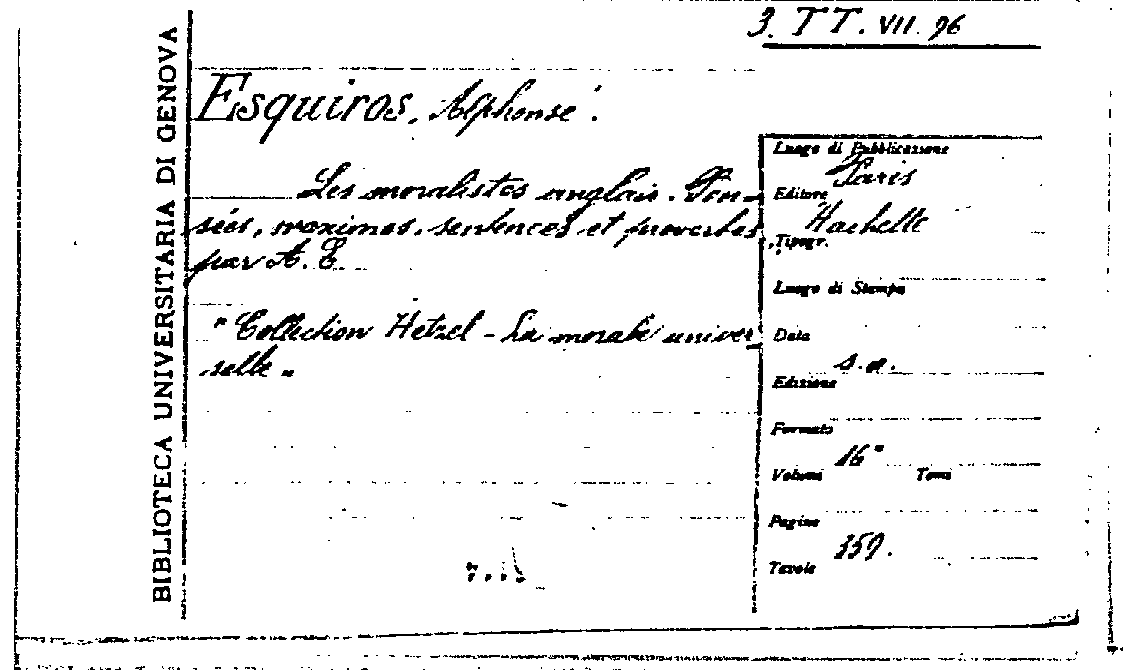 3. TT. VII. 96
BIBLIOTECA UNIVERSITARIA DI GENOVA
Esquiros, Alphonse.
Les moralistes anglais. Pen-
sées, maximes, sentences et proverbes
par A. E.
"Collection Hetzel - La morale univer
selle"
Luogo di Pubblicazione
Paris
Editore
Hachette
Tipogr.
Luogo di Stampa
Data
s.a.
Edizione
Formato
16°
Volumi Tomi
Pagine
359.
Tavole